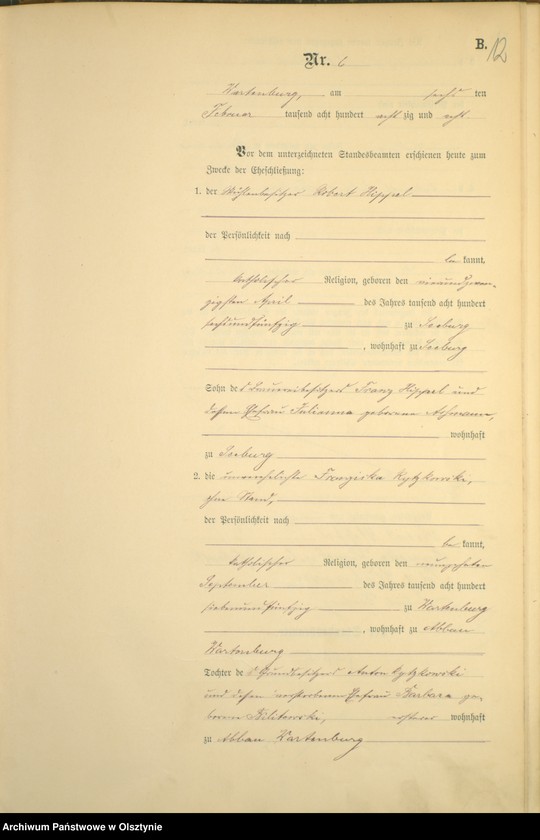 B.
12
Nr. 6
Wartenburg, am sechs ten
Februar tausend acht hundert acht zig und acht.
Vor dem unterzeichneten Standesbeamten erschienen heute zum
Zwecke der Eheschließung:
1. der Mühlenbesitzer Robert Hippel
der Persönlichkeit nach
be kannt,
katholischer Religion, geboren den vierundzwan-
zigsten April des Jahres tausend acht hundert
sechsundfünfzig zu Seeburg
, wohnhaft zu Seeburg
Sohn des Brauereibesitzers Franz Hippel und
dessen Ehefrau Julianna geborene
wohnhaft
zu Seeburg
2. die unverehelichte Franziska Kytzkowski,
ohne Stand,
der Persönlichkeit nach
be kannt,
katholischer Religion, geboren den neunzehnten
September des Jahres tausend acht hundert
siebenundfünfzig zu Wartenburg
, wohnhaft zu Abbau
Wartenburg
Tochter des Grundbesitzers Anton Kytzkowski
und dessen verstorbenen Ehefrau Barbara ge-
borene ersterer wohnhaft
zu Abbau Wartenburg
Archiwum Państwowe w Olsztynie